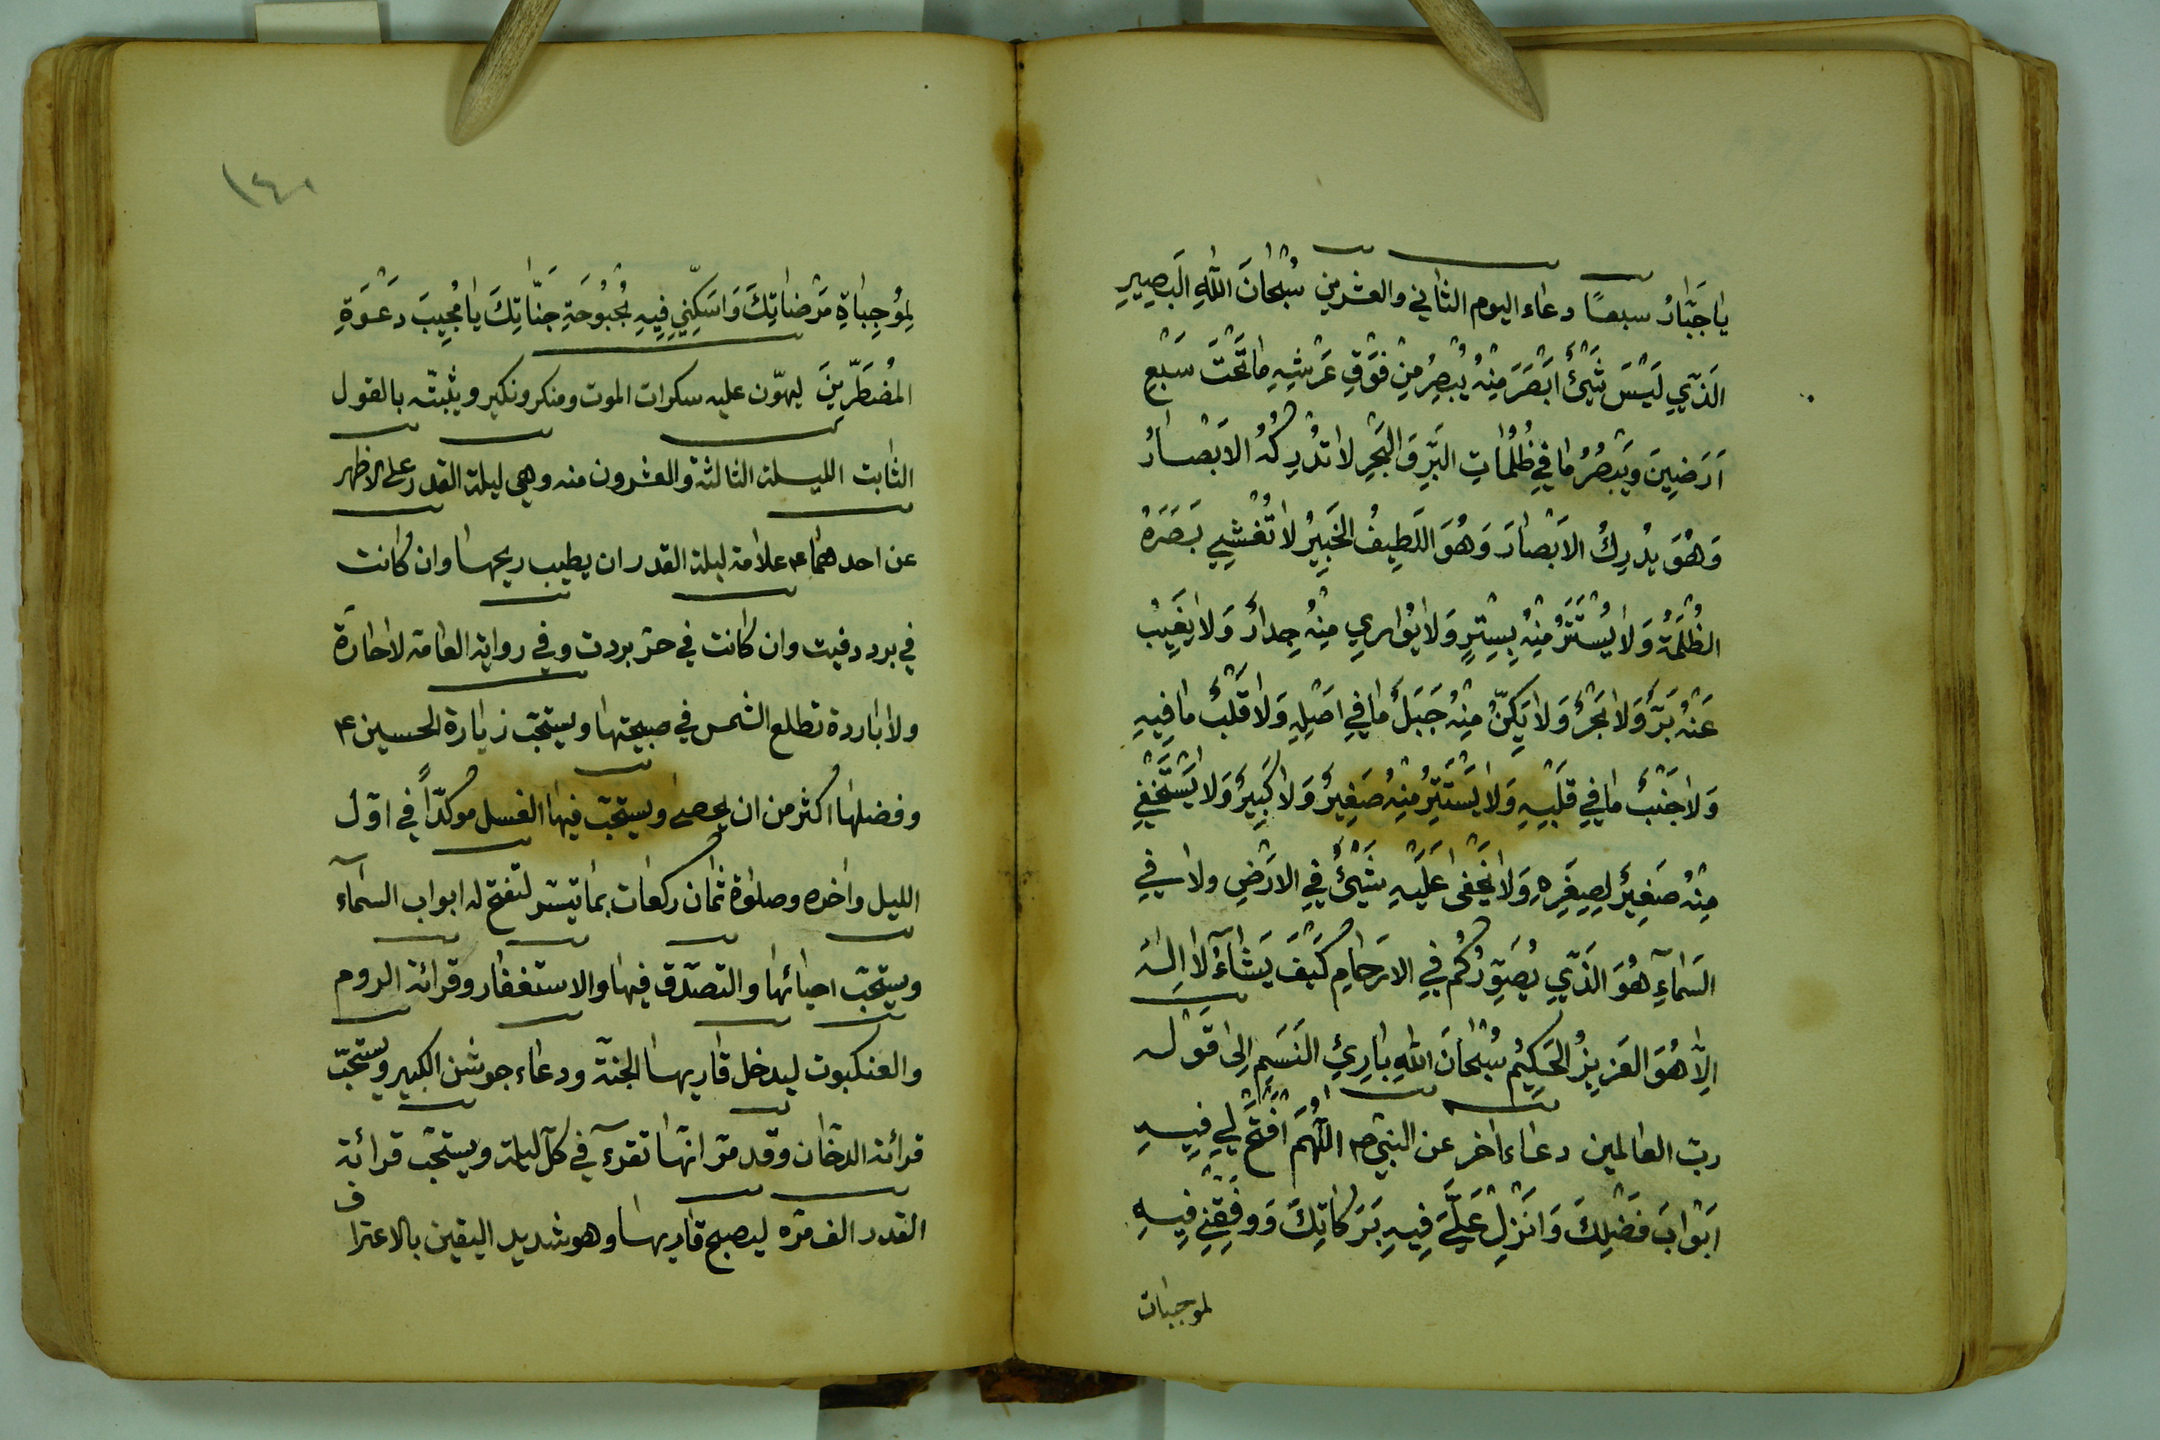 يا جَبّارُ سبعًا دعاء اليوم الثاني والعشرين سُبْحانَ اللهِ البَصيرِ
الَّذي لَيْسَ شَيْئٌ اَبْصَرَ مِنْهُ يُبْصِرُ مِنْ فَوْقِ عَرْشِهِ ما تَحْتَ سَبْعِ
اَرَضينَ وَيُبْصِرُ ما في ظُلُماتِ البَرِّ وَالبَحْرِ لا تُدْرِكُهُ الاَبْصارُ
وَهُوَ يُدْرِكُ الاَبْصارَ وَهُوَ اللَّطيفُ الخَبيرُ لا تُغْشي بَصَرَهُ
الظُّلْمَةُ وَلا يُسْتَتَرُ مِنْهُ بِسِتْرٍ وَلا يُواري مِنْهُ جِدارٌ وَلا يَغيبُ
عَنْهُ بَرٌّ وَلا بَحْرٌ وَلا يَكِنُّ مِنْهُ جَبَلٌ ما في اَصْلِهِ وَلا قَلْبٌ ما فيهِ
وَلا جَنْبٌ ما في قَلْبِهِ وَلا يَسْتَتِرُ مِنْهُ صَغيرٌ وَلا كَبيرٌ وَلا يَسْتَخْفي
مِنْهُ صَغيرٌ لِصِغَرِهِ وَلا يَخْفى عَلَيْهِ شَيْئٌ في الاَرْضِ ولا في
السَّماءِ هُوَ الَّذي يُصَوِّرُكُم في الارحامِ كَيْفَ يَشاءُ لا اِلهَ
اِلّا هُوَ العَزيزُ الحَكيمُ سُبْحانَ اللهِ بارِئِ النَّسَمِ اِلى قَوْله
ربّ العالمين دعاء اخر عن النبيّ ص اللّهُمَّ افْتَحْ لي فيهِ
اَبْوابَ فَضْلِكَ وَاَنْزِلْ عَلَيَّ فيهِ بَرَكاتِكَ وَوَفِّقْني فيهِ
لموجبات
١٤٠
لِمُوجِباةِ مَرْضاتِكَ وَاَسْكِنّي فيهِ بُحْبُوحَةِ جَنّاتِكَ يا مُجيبَ دَعْوَةِ
المُضطَرّينَ ليهوّن عليه سكرات الموت ومنكر ونكير ويثبّته بالقول
الثابت الليلة الثالثة والعشرون منه وهي ليلة القدر على الاظهر
عن احدهما ع علامة ليلة القدر ان يطيب ريحها وان كانت
في برد دفيت وان كانت في حرّ بردت وفي رواية العامة لا حارّة
ولا باردة تطلع الشمس في صبيحتها ويستحبّ زيارة الحسين ع
وفضلها اكثر من ان يحصى ويستحبّ فيها الغسل موكدّاً في اوّل
الليل واخره وصلوة ثمان ركعات بما تيسّر لتفتح له ابواب السمآء
ويستحبّ احيائها والتصدّق فيها والاستغفار وقرائة الروم
والعنكبوت ليدخل قاريها الجنّة ودعاء جوشن الكبير ويستحبّ
قرائة الدخان وقد مرّ انّها تقرء في كلّ ليلة ويستحبّ قرائة
القدر الف مرّه ليصبح قاريها وهو شديد اليقين بالاعتراف